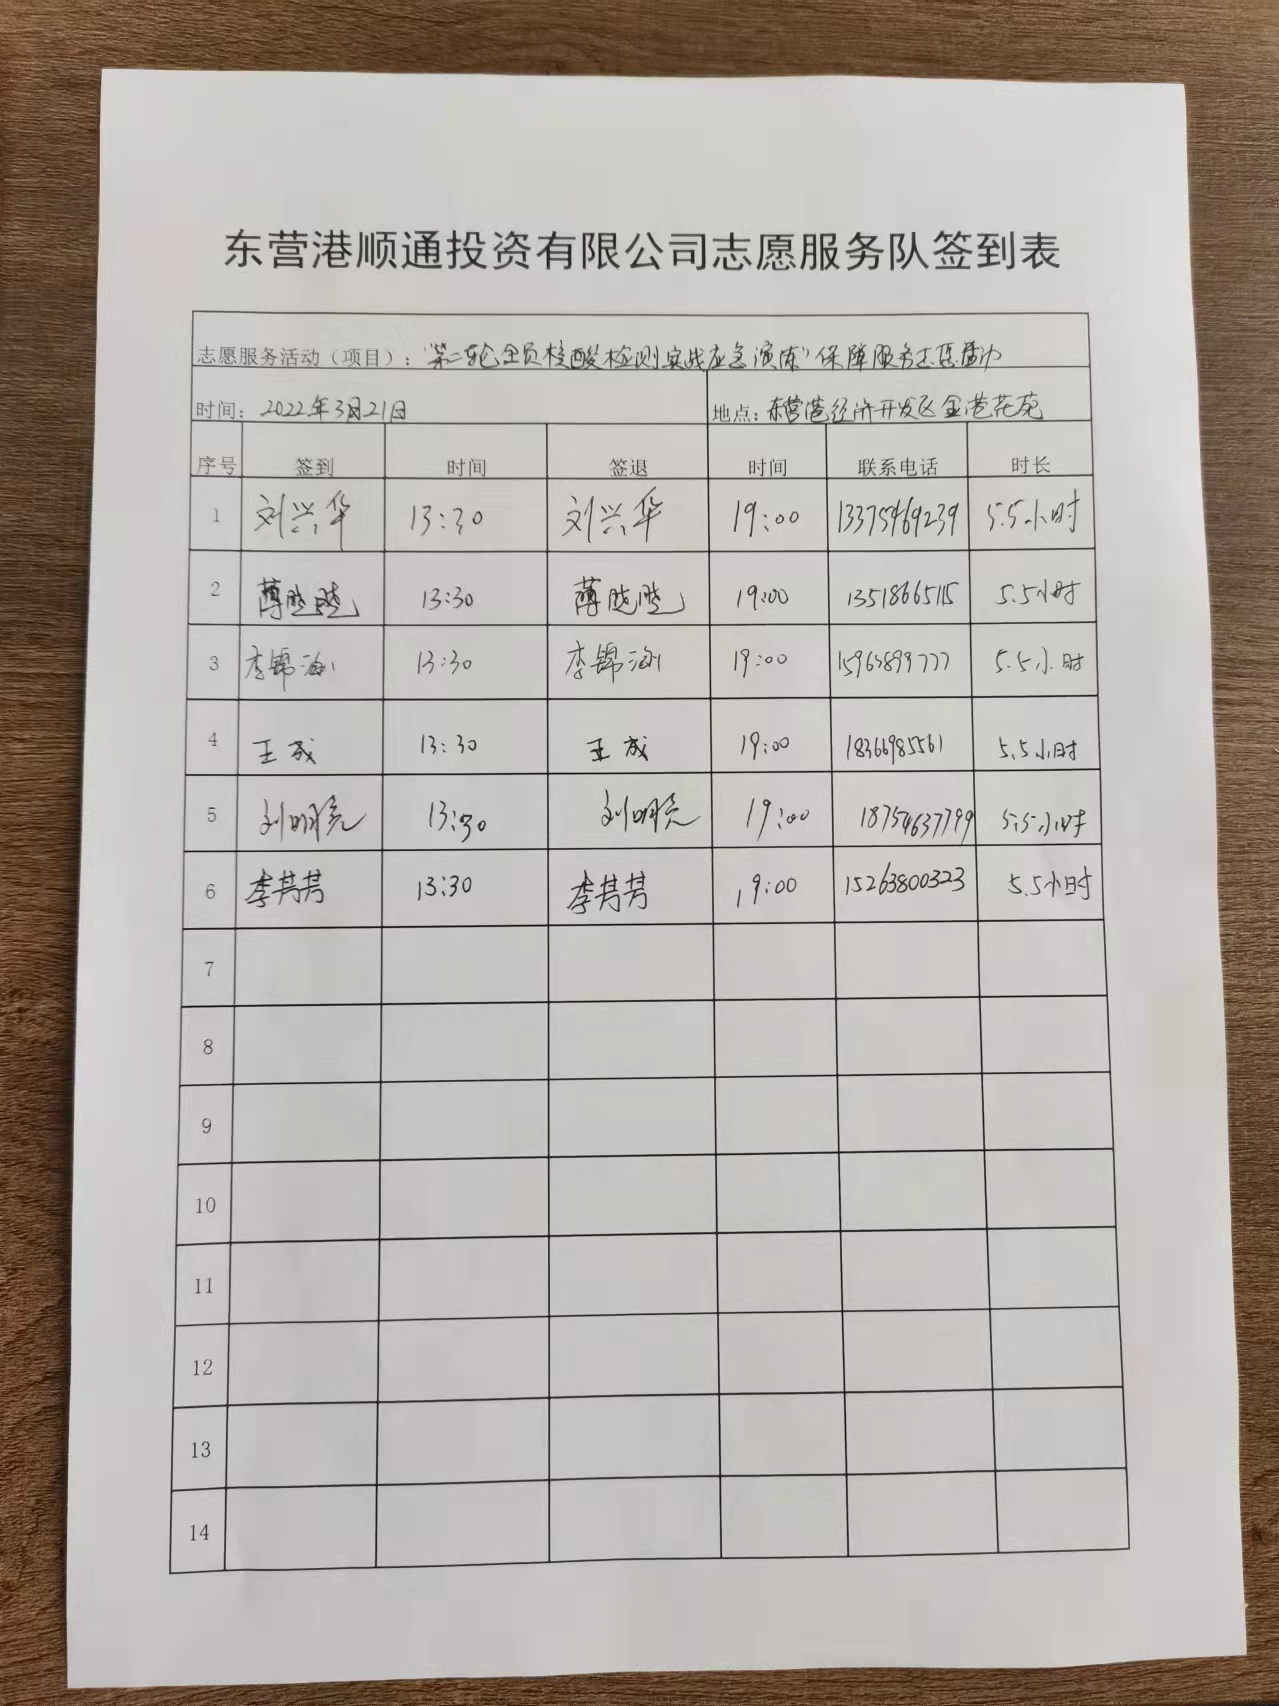 东营港顺通投资有限公司志愿服务队签到表
志愿服务活动（项目）：“第二轮全员核酸检测实战应急演练”保障服务志愿活动
时间：2022年3月21日 地点：东营港经济开发区金港花苑
序号 签到 时间 签退 时间 联系电话 时长
1 刘兴华 13:30 刘兴华 19:00 13375469239 5.5小时
2 薄晓晓 13:30 薄晓晓 19:00 13518665115 5.5小时
3 李锦涵 13:30 李锦涵 19:00 5.5小时
4 王成 13:30 王成 19:00 18366985561 5.5小时
5 刘明亮 13:30 刘明亮 19:00 18754637799 5.5小时
6 李芳芳 13:30 李芳芳 19:00 15263800323 5.5小时
7
8
9
10
11
12
13
14